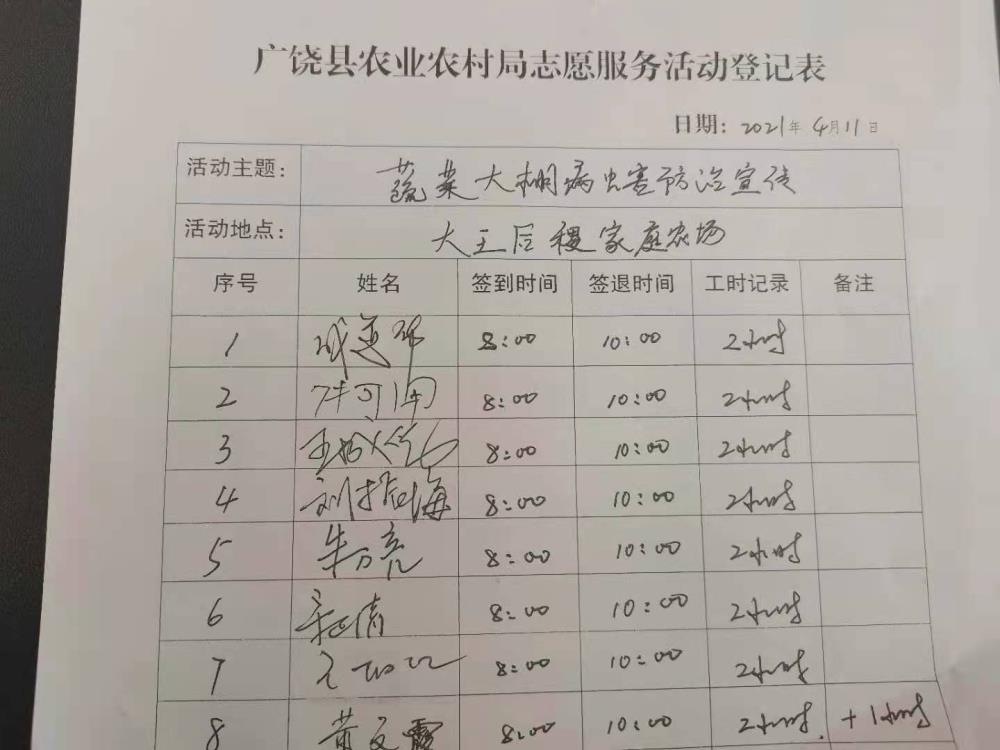 广饶县农业农村局志愿服务活动登记表
日期：2021年4月11日
活动主题： 蔬菜大棚病虫害防治宣传
活动地点： 大王后稷家庭农场
序号 姓名 签到时间 签退时间 工时记录 备注
1 8:00 10:00 2小时
2 8:00 10:00 2小时
3 8:00 10:00 2小时
4 刘 海 8:00 10:00 2小时
5 朱万亮 8:00 10:00 2小时
6 8:00 10:00 2小时
7 8:00 10:00 2小时
8 黄文霞 8:00 10:00 2小时 +1小时